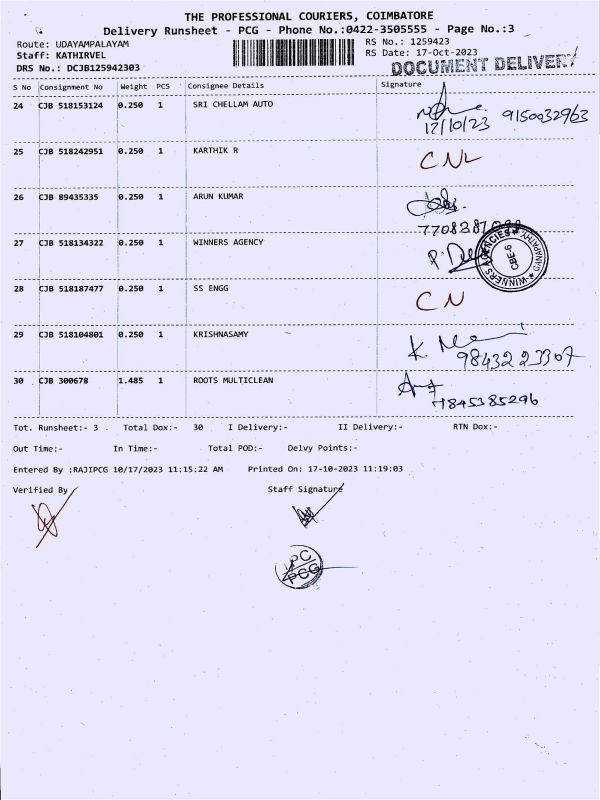 THE PROFESSIONAL COURIERS, COIMBATORE
Delivery Runsheet - PCG - Phone No.:0422-3505555 - Page No.:3
Route: UDAYAMPALAYAM RS No.: 1259423
Staff: KATHIRVEL RS Date: 17-Oct-2023
DRS No.: DCJB125942303 DOCUMENT DELIVERY
S No Consignment No Weight PCS Consignee Details Signature
24 CJB 518153124 0.250 1 SRI CHELLAM AUTO
17/10/23 9150032963
25 CJB 518242951 0.250 1 KARTHIK R CNL
26 CJB 89435335 0.250 1 ARUN KUMAR
27 CJB 518134322 0.250 1 WINNERS AGENCY
WINNERS AGENCIES GANAPATHY CBE-6
28 CJB 518187477 0.250 1 SS ENGG CN
29 CJB 518104801 0.250 1 KRISHNASAMY K.
9843223307
30 CJB 300678 1.485 1 ROOTS MULTICLEAN
7845385296
Tot. Runsheet:- 3 Total Dox:- 30 I Delivery:- II Delivery:- RTN Dox:-
Out Time:- In Time:- Total POD:- Delvy Points:-
Entered By :RAJIPCG 10/17/2023 11:15:22 AM Printed On: 17-10-2023 11:19:03
Verified By Staff Signature
PC
PCG